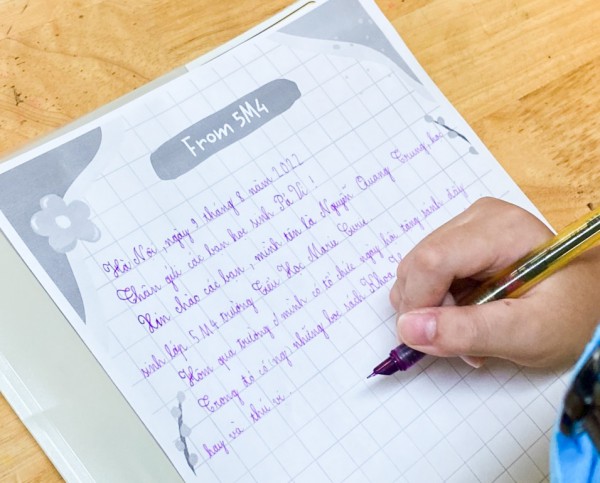 From 5M4
Hà Nội, ngày 9 tháng 3 năm 2022
Thân gửi các bạn học sinh Pả Vi!
Xin chào các bạn, mình tên là Nguyễn Quang Trung, học
sinh lớp 5M4 trường Tiểu Học Marie Curie
Hôm qua trường mình có tổ chức ngày hội tặng sách đấy
Trong đó có những sách Khoa
hay và thú vị